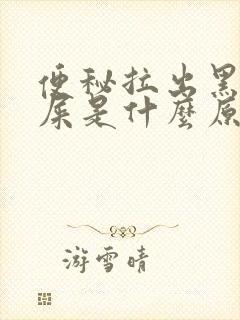 便秘拉出黑
屎是什麼原
游雪晴